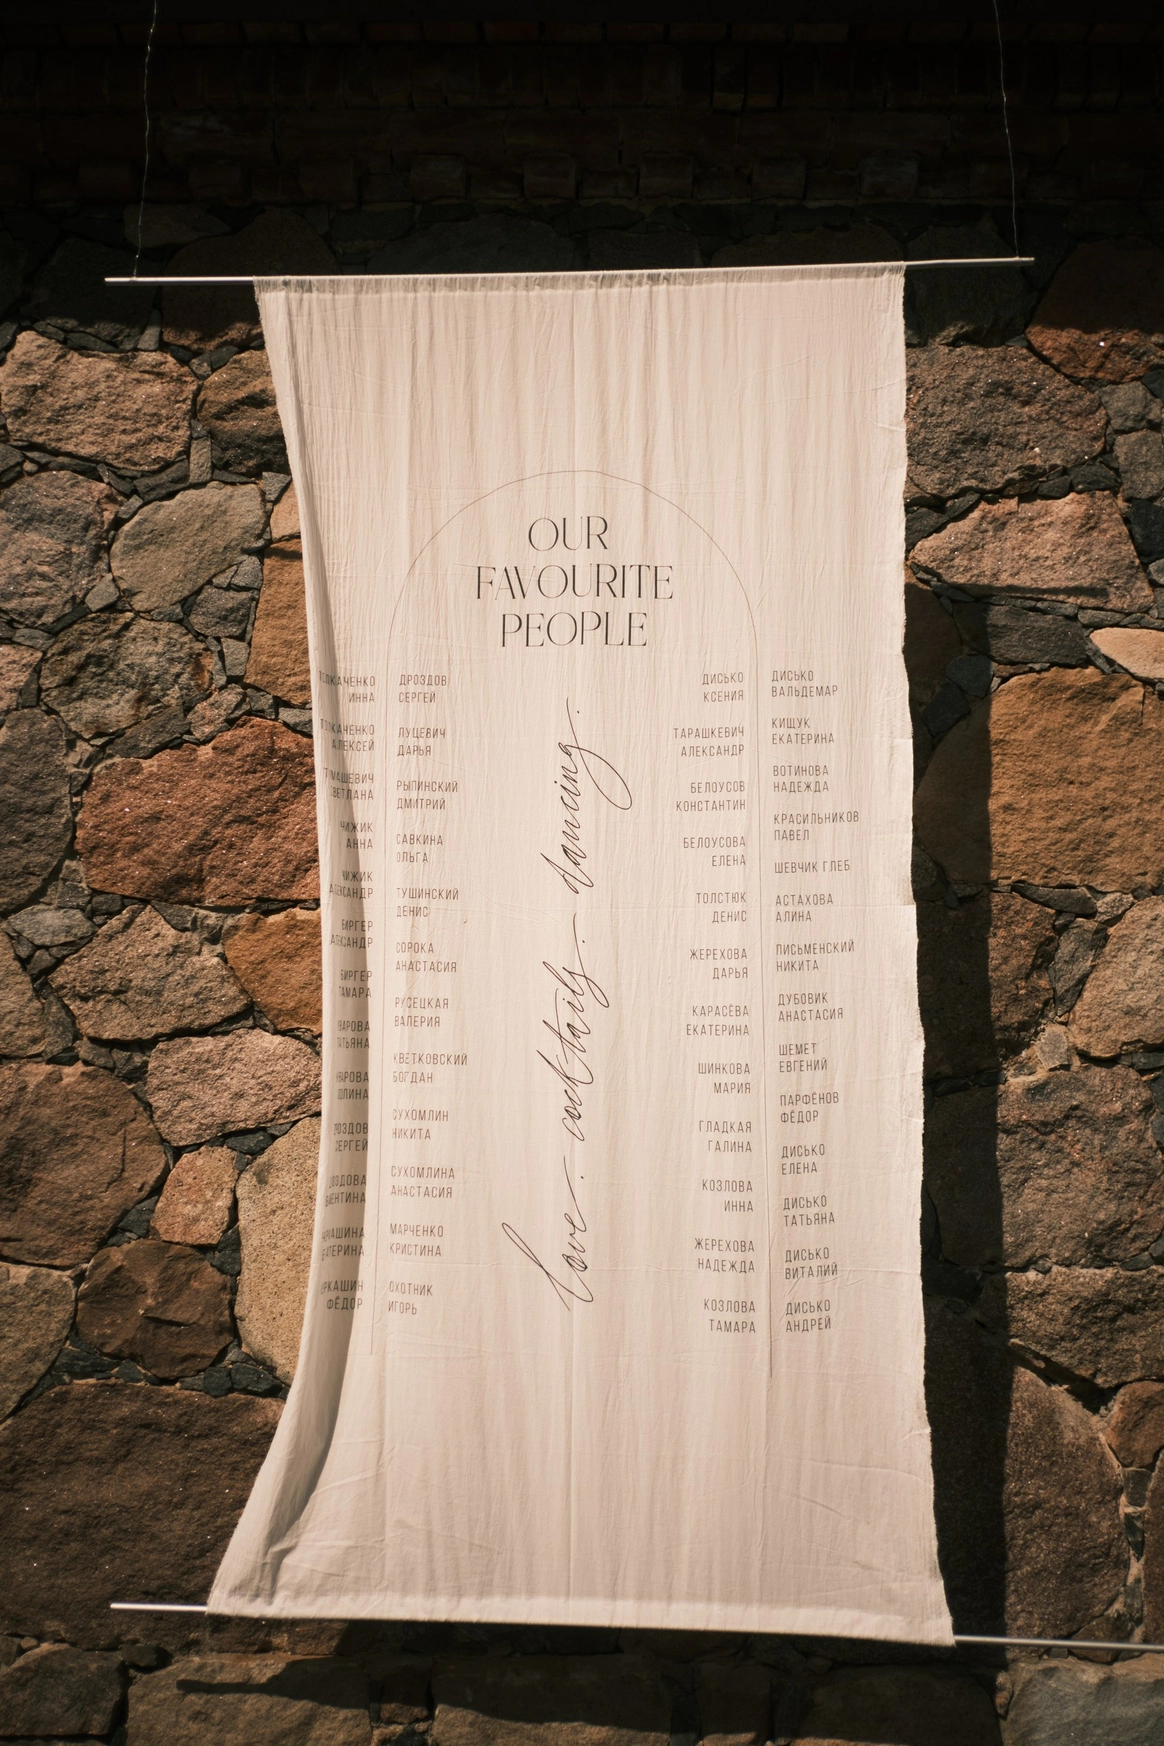 OUR
FAVOURITE
PEOPLE
ИННА
АННА
ЧИЖИК
БИРГЕР
ТАМАРА
СЕРГЕЙ
ФЁДОР
ДРОЗДОВ
СЕРГЕЙ
ЛУЦЕВИЧ
ДАРЬЯ
РЫПИНСКИЙ
ДМИТРИЙ
САВКИНА
ОЛЬГА
ТУШИНСКИЙ
ДЕНИС
СОРОКА
АНАСТАСИЯ
РУСЕЦКАЯ
ВАЛЕРИЯ
КВЕТКОВСКИЙ
БОГДАН
СУХОМЛИН
НИКИТА
СУХОМЛИНА
АНАСТАСИЯ
МАРЧЕНКО
КРИСТИНА
ОХОТНИК
ИГОРЬ
love. cocktails. dancing.
ДИСЬКО
КСЕНИЯ
ТАРАШКЕВИЧ
АЛЕКСАНДР
БЕЛОУСОВ
КОНСТАНТИН
БЕЛОУСОВА
ЕЛЕНА
ТОЛСТЮК
ДЕНИС
ЖЕРЕХОВА
ДАРЬЯ
КАРАСЁВА
ЕКАТЕРИНА
ШИНКОВА
МАРИЯ
ГЛАДКАЯ
ГАЛИНА
КОЗЛОВА
ИННА
ЖЕРЕХОВА
НАДЕЖДА
КОЗЛОВА
ТАМАРА
ДИСЬКО
ВАЛЬДЕМАР
КИЩУК
ЕКАТЕРИНА
ВОТИНОВА
НАДЕЖДА
КРАСИЛЬНИКОВ
ПАВЕЛ
ШЕВЧИК ГЛЕБ
АСТАХОВА
АЛИНА
ПИСЬМЕНСКИЙ
НИКИТА
ДУБОВИК
АНАСТАСИЯ
ШЕМЕТ
ЕВГЕНИЙ
ПАРФЁНОВ
ФЁДОР
ДИСЬКО
ЕЛЕНА
ДИСЬКО
ТАТЬЯНА
ДИСЬКО
ВИТАЛИЙ
ДИСЬКО
АНДРЕЙ